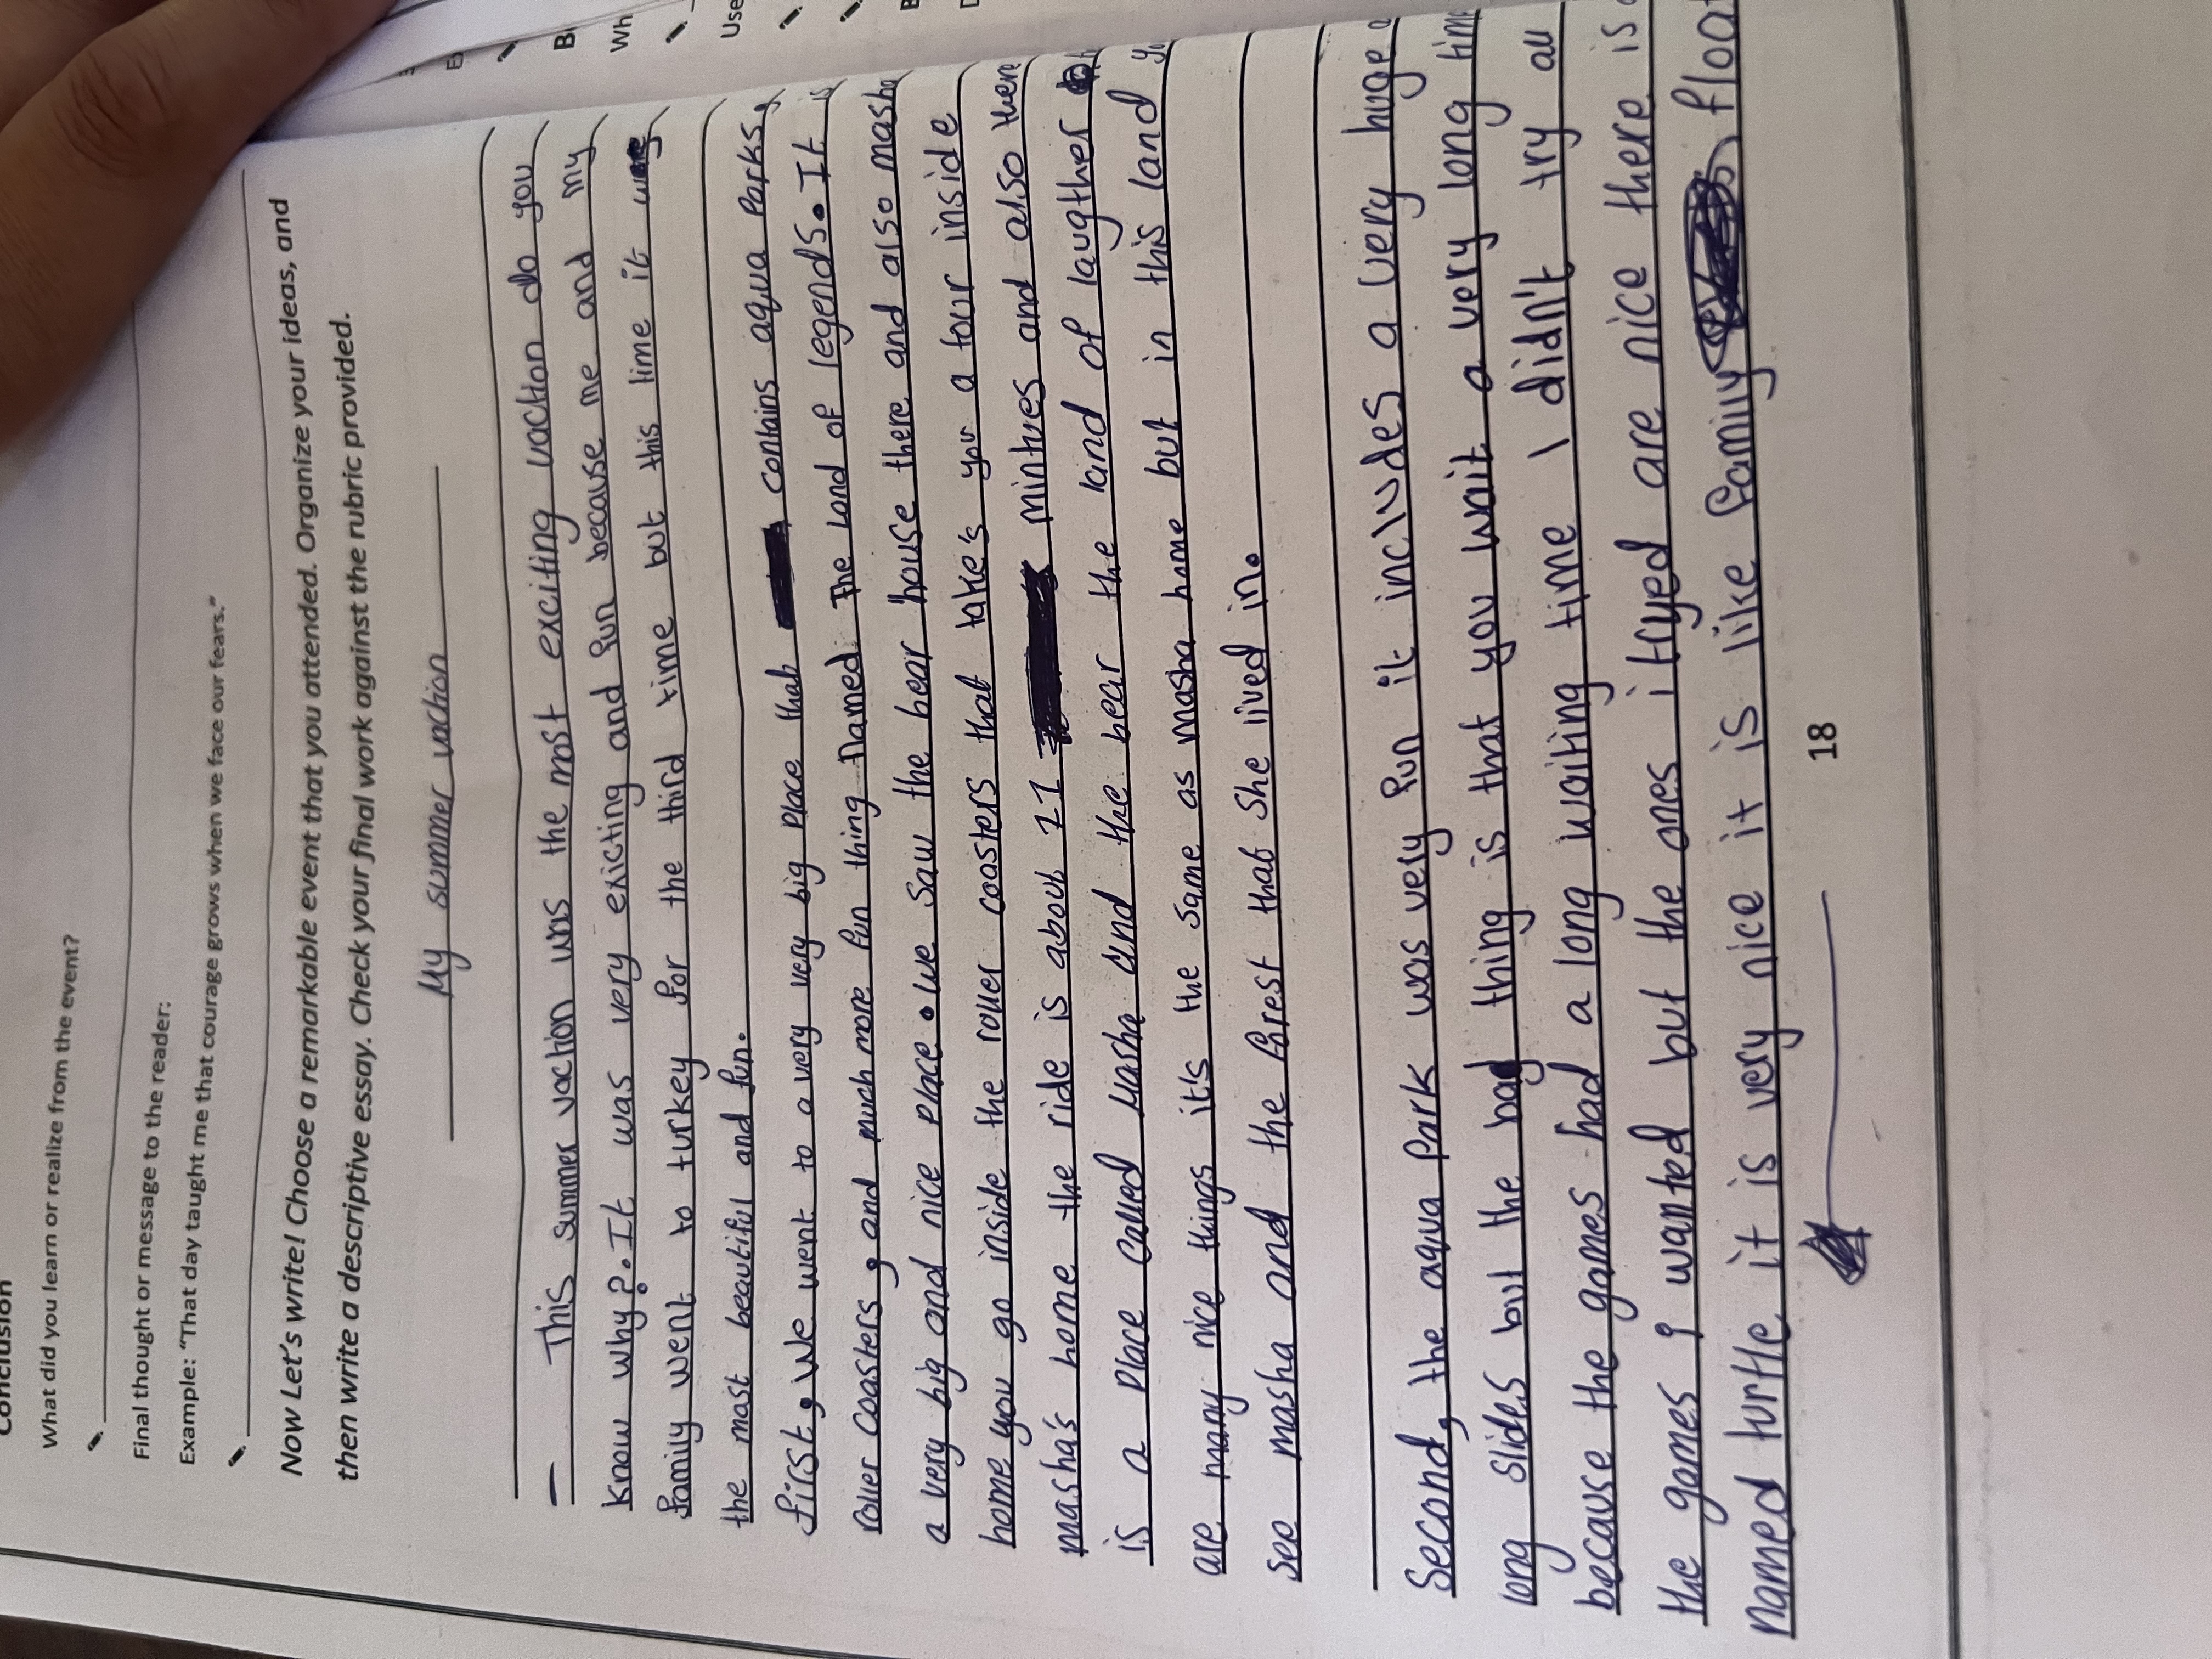 Conclusion
What did you learn or realize from the event?
Final thought or message to the reader:
Example: "That day taught me that courage grows when we face our fears."
Now Let's write! Choose a remarkable event that you attended. Organize your ideas, and
then write a descriptive essay. Check your final work against the rubric provided.
My summer vaction
This summer vaction was the most exciting vaction do you
know why?. It was very exicting and fun because me and my
family went to turkey for the third time but this time it
the most beautiful and fun.
first, we went to a very very big place that contains aqua parks,
roller coasters, and much more fun thing named The Land of legends. It is
a very big and nice place. we saw the bear house there and also masha
home you go inside the roller coasters that take's you a tour inside
masha's home the ride is about mintues and also there
is a place called Masha and the bear the land of laugther
are many nice things it's the same as masha home but in this land
see masha and the forest that she lived in.
Second, the aqua park was very fun it includes a very huge
long slides but the bad thing is that you wait a very long time
because the games had a long waiting time I didn't try all
the games I wanted but the ones i tryed are nice there is
named turtle it is very nice it is like family float
18
Wh
Use